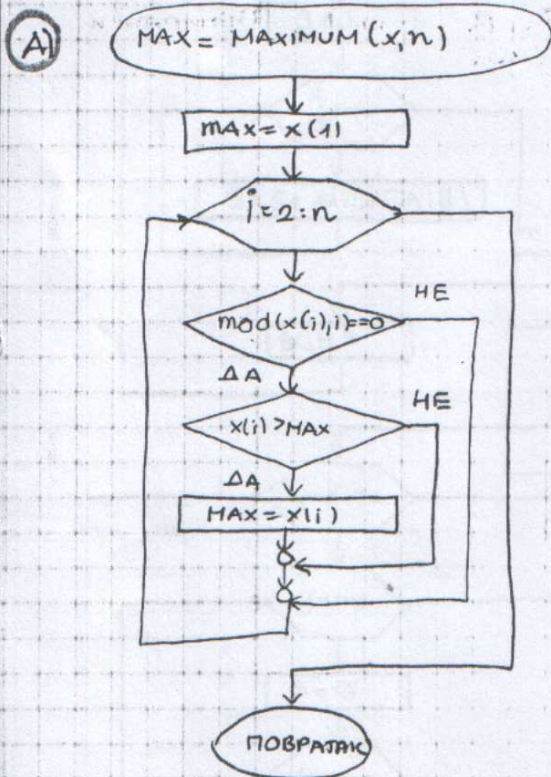 A)
MAX = MAXIMUM (x,n)
MAX = x(1)
i=2:n
mod(x(i),i)==0
НЕ
ДА
x(i)>MAX
НЕ
ДА
MAX = x(i)
ПОВРАТАК